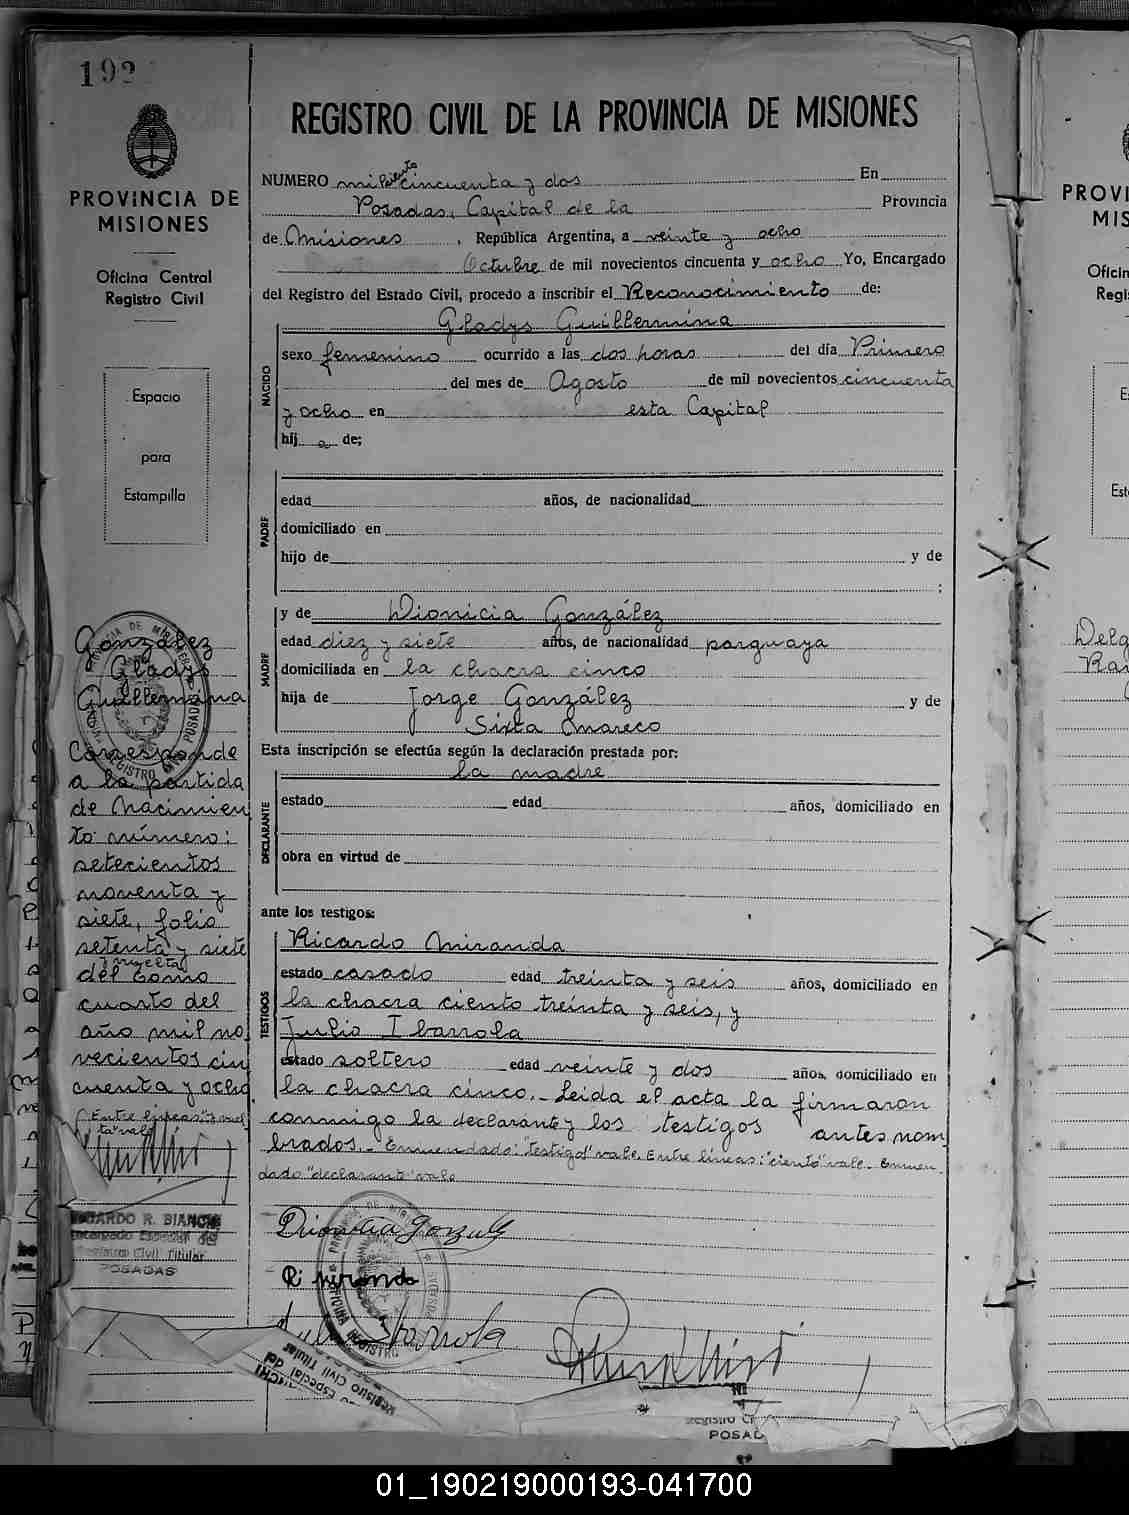 192
REGISTRO CIVIL DE LA PROVINCIA DE MISIONES
PROVINCIA DE
MISIONES
Oficina Central
Registro Civil
Espacio
para
Estampilla
NUMERO mil ciento cincuenta y dos En
Posadas, Capital de la Provincia
de Misiones, República Argentina, a veinte y ocho
Octubre de mil novecientos cincuenta y ocho Yo, Encargado
del Registro del Estado Civil, procedo a inscribir el Reconocimiento de:
Gladys Guillermina
NACIDO
sexo femenino ocurrido a las dos horas del día Primero
del mes de Agosto de mil novecientos cincuenta
y ocho en esta Capital
hij a de;
PADRE
edad años, de nacionalidad
domiciliado en
hijo de y de
;
MADRE
y de Dionicia González
edad diez y siete años, de nacionalidad parguaya
domiciliada en la chacra cinco
hija de Jorge González y de
Sixta Omareco
Esta inscripción se efectúa según la declaración prestada por:
la madre
DECLARANTE
estado edad años, domiciliado en
obra en virtud de
ante los testigos:
TESTIGOS
Ricardo Miranda
estado casado edad treinta y seis años, domiciliado en
la chacra ciento treinta y seis, y
Julio Ibarrola
estado soltero edad veinte y dos años, domiciliado en
la chacra cinco.- Leida el acta la firmaron
conmigo la declarante y los testigos antes nom
brados.- Enmendado: "testigo" vale. Entre lineas: "ciento" vale.- Enmen
dado "declarante" vale
González
Gladys
Guillermina
Corresponde
a la partida
de Nacimien
to número:
setecientos
noventa y
siete, folio
setenta y siete
y vuelta
del tomo
cuarto del
año mil no
vecientos cin
cuenta y ocho
Entre lineas "y vuel
ta" vale
EDUARDO R. BIANCHI
Encargado Especial del
Registro Civil Titular
POSADAS
R. miranda
Julio Ibarrola
Especial del
Registro Civil Titular
Registro Ci
POSAD
PROVI
MIS
Oficin
Regi
E
Est
Delg
Ra
01_190219000193-041700